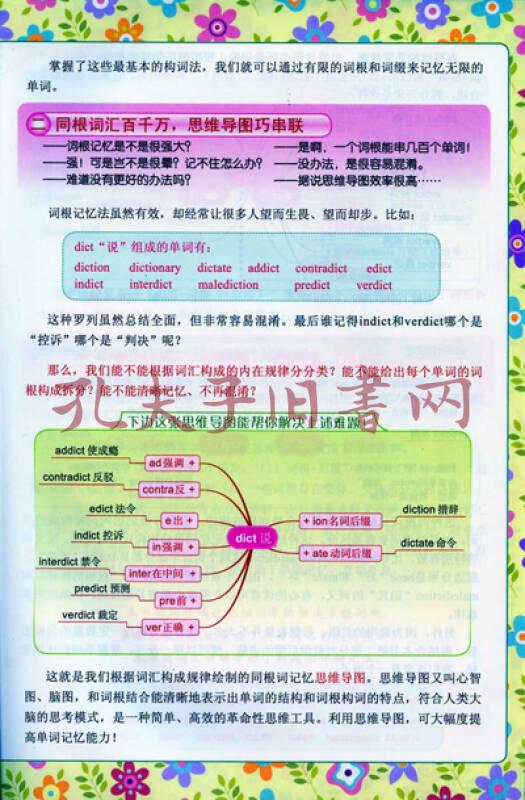 掌握了这些最基本的构词法，我们就可以通过有限的词根和词缀来记忆无限的
单词。
二 同根词汇百千万，思维导图巧串联
——词根记忆是不是很强大？ ——是啊，一个词根能串几百个单词！
——强！可是岂不是很晕？记不住怎么办？ ——没办法，是很容易混淆。
——难道没有更好的办法吗？ ——据说思维导图效率很高……
词根记忆法虽然有效，却经常让很多人望而生畏、望而却步。比如：
dict“说”组成的单词有：
diction dictionary dictate addict contradict edict
indict interdict malediction predict verdict
这种罗列虽然总结全面，但非常容易混淆。最后谁记得indict和verdict哪个是
“控诉”哪个是“判决”呢？
那么，我们能不能根据词汇构成的内在规律分分类？能不能给出每个单词的词
根构成拆分？能不能清晰记忆、不再混淆？
孔夫子旧书网
下边这张思维导图能帮你解决上述难题！
addict 使成瘾
ad强调 +
contradict 反驳
contra反 +
edict 法令
e出 +
indict 控诉
in强调 +
interdict 禁令
inter在中间 +
predict 预测
pre前 +
verdict 裁定
ver正确 +
dict 说
+ ion名词后缀
diction 措辞
+ ate动词后缀
dictate 命令
这就是我们根据词汇构成规律绘制的同根词记忆思维导图。思维导图又叫心智
图、脑图，和词根结合能清晰地表示出单词的结构和词根构词的特点，符合人类大
脑的思考模式，是一种简单、高效的革命性思维工具。利用思维导图，可大幅度提
高单词记忆能力！